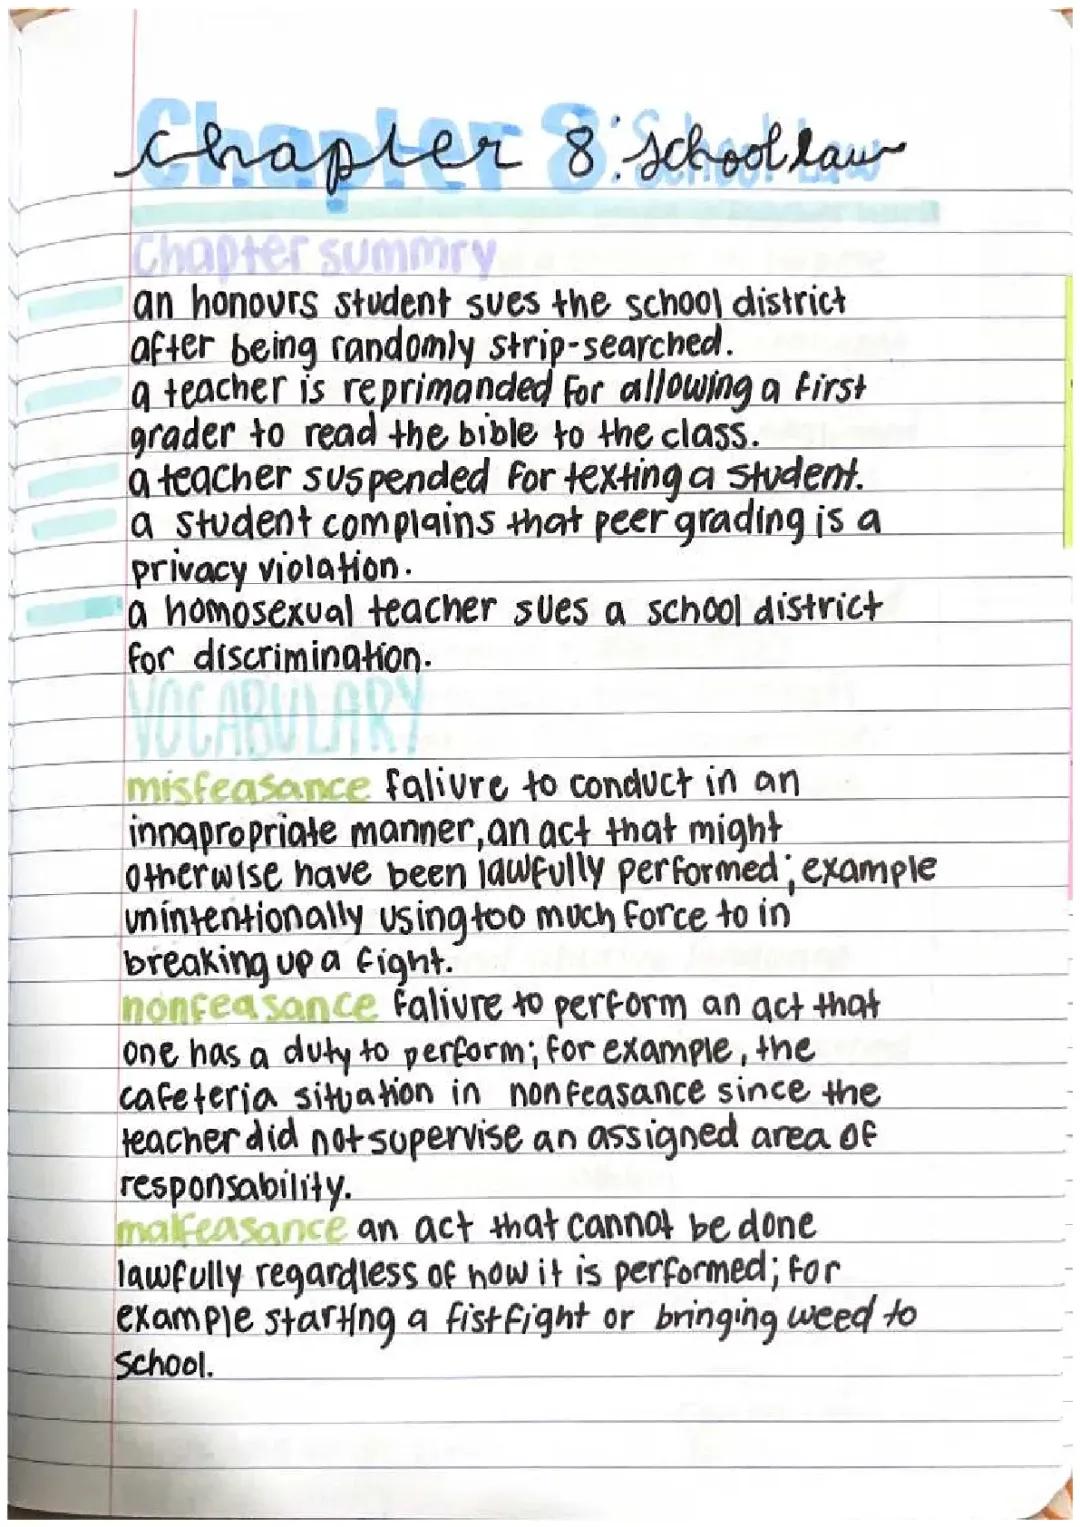 Chapter 8: School Law
chapter 8: School law
Chapter summry
an honours student sues the school district
after being randomly strip-searched.
a teacher is reprimanded for allowing a first
grader to read the bible to the class.
a teacher suspended for texting a student.
a student complains that peer grading is a
privacy violation.
a homosexual teacher sues a school district
for discrimination.
VOCABULARY
misfeasance faliure to conduct in an
innapropriate manner, an act that might
otherwise have been lawfully performed; example
unintentionally using too much force to in
breaking up a fight.
nonfeasance faliure to perform an act that
one has a duty to perform; for example, the
cafeteria situation in nonfeasance since the
teacher did not supervise an assigned area of
responsability.
malfeasance an act that cannot be done
lawfully regardless of how it is performed; for
example starting a fistfight or bringing weed to
school.